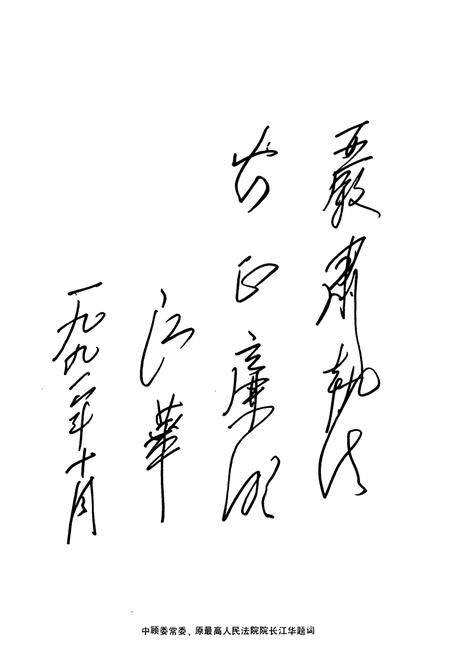 嚴肅執法
正廉明
江華
一九九一年十月
中顾委常委、原最高人民法院院长江华题词